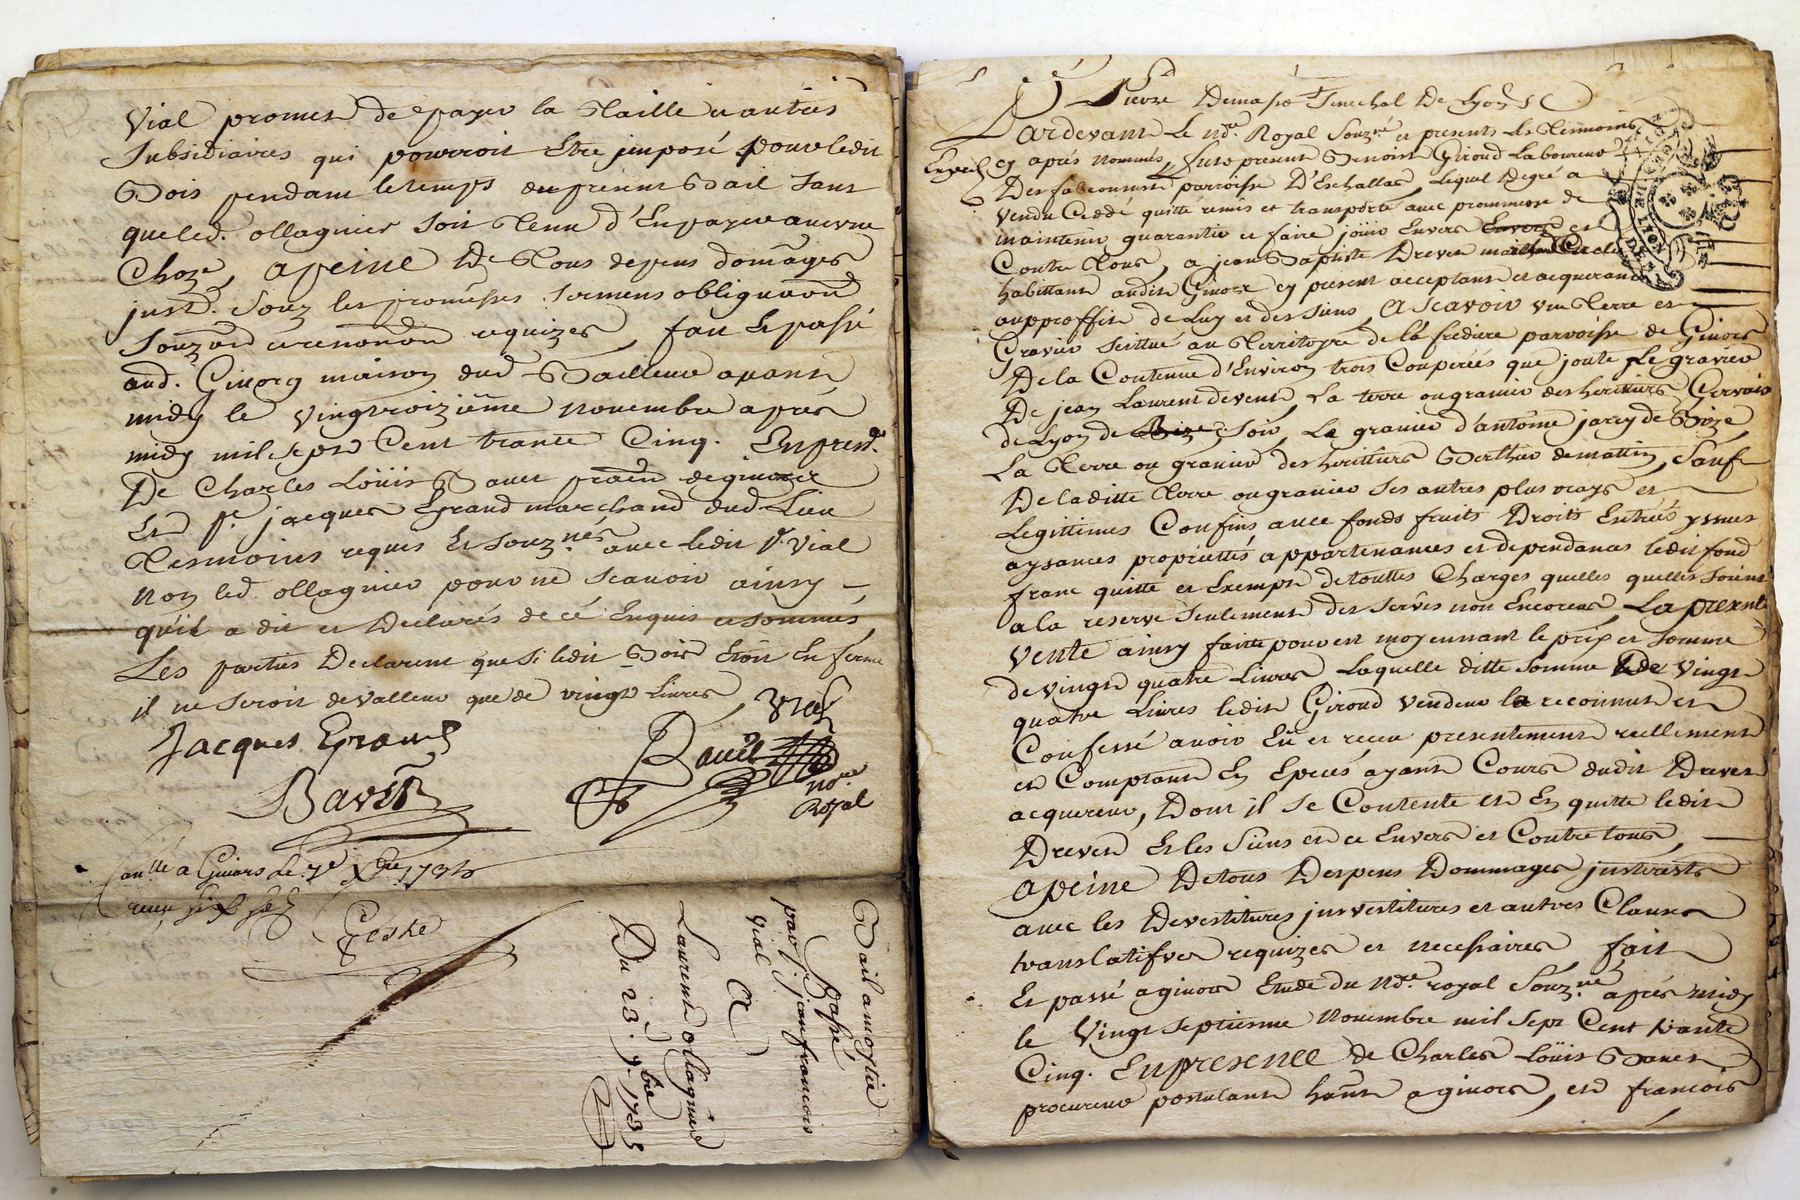 Vial promet de payer la Taille et autres
subsidiaires qui pourroit Etre imposé pour ledit
Bois pendant le temps du present Bail sans
que led. ollagnier soit Tenu d'En payer aucune
Choze, apeine De Tous depens domages
sous les promesses sermens obligaon
requizes, fait Et passé
aud. Givors maison dud Bailleur avant
midy le vingt troizième novembre après
midy mil sept Cent trante Cinq. En presce
De Charles Loüis Bavet de givors
Et Sr. jacques Grand marchand dud Lieu
Tesmoins requis Et souznés avec ledit Sr. Vial
non led. ollagnier pour ne scavoir ainsy
qu'il a dit et Declarés de cé Enquis et sommés,
Les parties Declarent que si ledit Bois Etoit En ferme
il ne seroit de valleur que de vingt Livres,
Vial
Jacques Grand
Bavet
Bavet
nore
Royal
a Givors Le 7e Xbre 1735
receu
Geste
Bail a moytié
passé
par Sr. jean francois
Vial
A
Laurent ollagnier
Du 23. 9bre 1735
Senechal De Lyon
Pardevant Le nore. Royal Souzné et presents Les Tesmoins
cy aprés nommés, fut present Benoist Giroud Laboureur
paroisse D'Eschallas, Lequel De gré a
vendu Ceddé quitté remis et transporté avec promesse de
maintenir guarantir et faire joüir Envers et
Contre Tous, a jean Baptiste Drevet
habittant audit Givors cy present acceptant et acquerant
au proffit de Luy et des siens, A scavoir une Terre et
Gravier scittué au Territoyre de la fredière parroisse de Givors
De la Contenue d'Environ trois Couperées que joute Le gravier
De jean Laurent de vent, La terre ou gravier des heritiers Gervais
de Lyon de soir, Le gravier d'antoine jarcy de Bize,
La Terre ou gravier des heritiers Berthier de mattin, Sauf
De laditte Terre ou gravier ses autres plus vrays et
Legitimes Confins avec fonds fruits Droits Entrées yssues
aysances proprietés appartenances et dependances ledit fond
franc quitte et Exempt de touttes Charges quelles quelles soient
a la reserve seulement des servis non Encorus, La presente
Vente ainsy faitte pour et moyennant le prix et somme
de vingt quatre Livres Laquelle ditte somme de vingt
quatre Livres ledit Giroud vendeur a reconnut et
Confessé avoir Eü et receu presentement reellement
et Comptant En Epeces ayant Cours dudit Drevet
acquereur, Dont il se Contente et En quitte ledit
Drevet Et les Siens et ce Envers et Contre tous,
apeine De tous Despens Dommages jnterests
avec les Devestitures jnvestitures et autres Clauses
translatifves requizes et necessaires, fait
Et passé a givors Etude du nore. royal Souzné. aprés midy
le vingt septieme novembre mil sept Cent trante
Cinq. En presence de Charles Loüis Bavet
procureur postulant habit. a givors, et francois